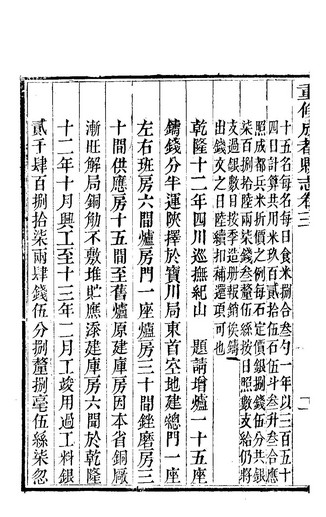 重修成都縣志卷三
十五名每名每日食米捌合叁勺一年以三百五十
四日計算共用米玖百貳拾伍石伍斗叁升叁合應
照成都兵米折價之例每石定價銀捌錢伍分共銀
柒百捌拾陸兩柒錢叁釐伍絲按日照數支給仍將
支過銀數日按季造册報銷俟鑄
出錢文之日陸續扣補還項可也
乾隆十二年四川巡撫紀山　題請增爐一十五座
鑄錢分半運陝擇於寶川局東首空地建總門一座
左右班房六間爐房門一座爐房三十間銼磨房三
十間供應房十五間至舊爐原建庫房因本省銅厰
漸旺解局銅觔不敷堆貯應添建庫房六間於乾隆
十二年十月興工至十三年二月工竣用過工料銀
貳千肆百捌拾柒兩肆錢伍分捌釐捌毫伍絲柒忽